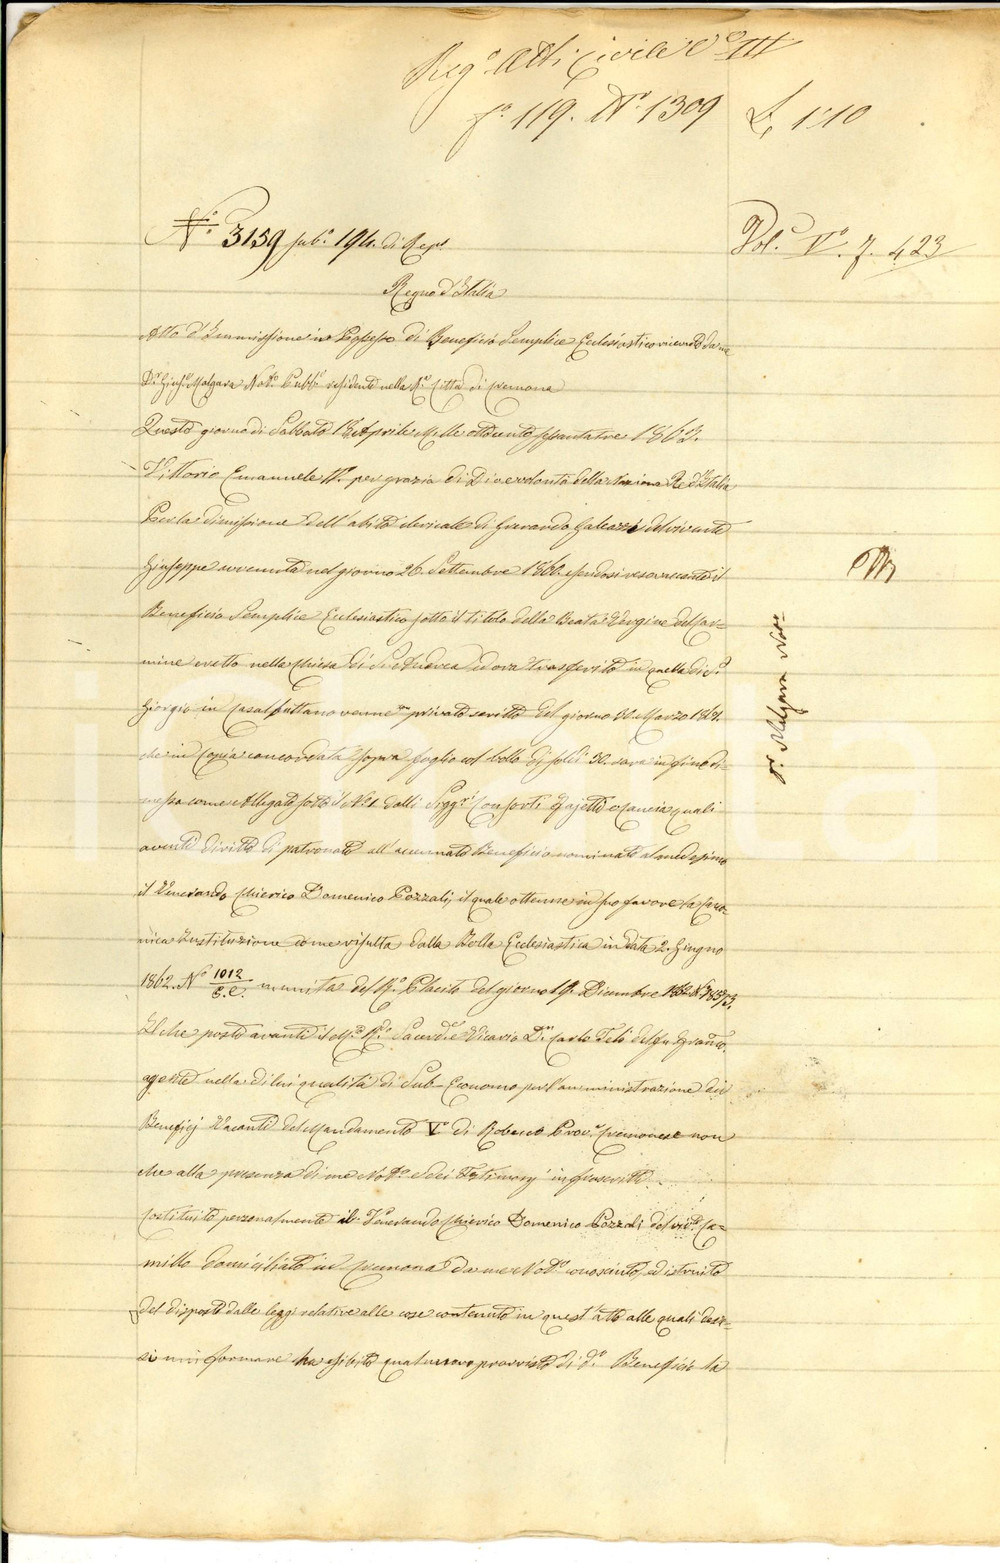 Reg.o Atti Civile V.o III
f.o 119. N.o 1309 L. 1.10
N.o 3159 sub.o 194. di Rep.
Vol. V.o f. 423
Regno d'Italia
Atto d'Immissione in Possesso di Beneficio Semplice Eclesiastico ricevuto da me
D.r Gius.e Malgara Not.o Pubb.o residente nella R.a Città di Cremona
Questo giorno di Sabbato 18 Aprile Mille ottocento sessantatre 1863.
Vittorio Emanuele II.o per grazia di Dio e volontà della Nazione Re d'Italia
Per la dimissione dell'abito clericale di Gerardo Galeazzi del vivente
Giuseppe avvenuta nel giorno 26 Settembre 1860. essendosi reso vacante il
Beneficio Semplice Eclesiastico sotto il titolo della Beata Vergine del Car=
mine eretto nella Chiesa di S. Andrea ed ora trasferito in quella di S.
Giorgio in Casalbuttano venne privato scritto del giorno 30 Marzo
che in Copia concordata sopra foglio col bollo di soldi 50. sarà in fine di=
messa come Allegato sotto il N. 1. dalli Sigg.ri Consorti quali
aventi diritto di patronato all'accennato Beneficio nominato al medesimo
il Venerando Chierico Domenico Pozzali, il quale ottenne in suo favore la Cano=
nica Instituzione come risulta dalla Bolla Eclesiastica in data 2. Giugno
1862. N.o 1012/B.C. munita del R.o Placito del giorno 19. Dicembre 1862 N.
Il che posto avanti il M.o R.do Sacerd.e Vicario D.n Carlo del fu
agente nella di lui qualità di Sub-Economo per l'amministrazione dei
Beneficj Vacanti del Mandamento V.o di Robecco Prov.a Cremonese non
che alla presenza di me Not.o e dei Testimonj infrascritti
Costituito personalmente il Venerando Chierico Domenico Pozzali del viv.e Ca=
millo domiciliato in Cremona da me Not.o conosciuto, ed istruito
del disposto dalle leggi relative alle cose contenute in quest'atto alle quali
si formare ha esibito qual nuovo provvisto di d.o Beneficio la
D.r Malgara Not.o